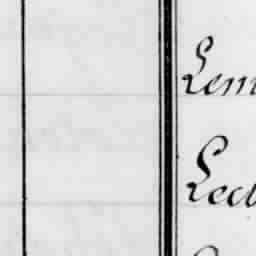 Lem
Lect